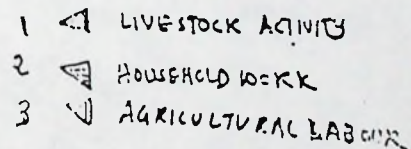 1 LIVESTOCK ACTIVITY
2 HOUSEHOLD WORK
3 AGRICULTURAL LABOUR